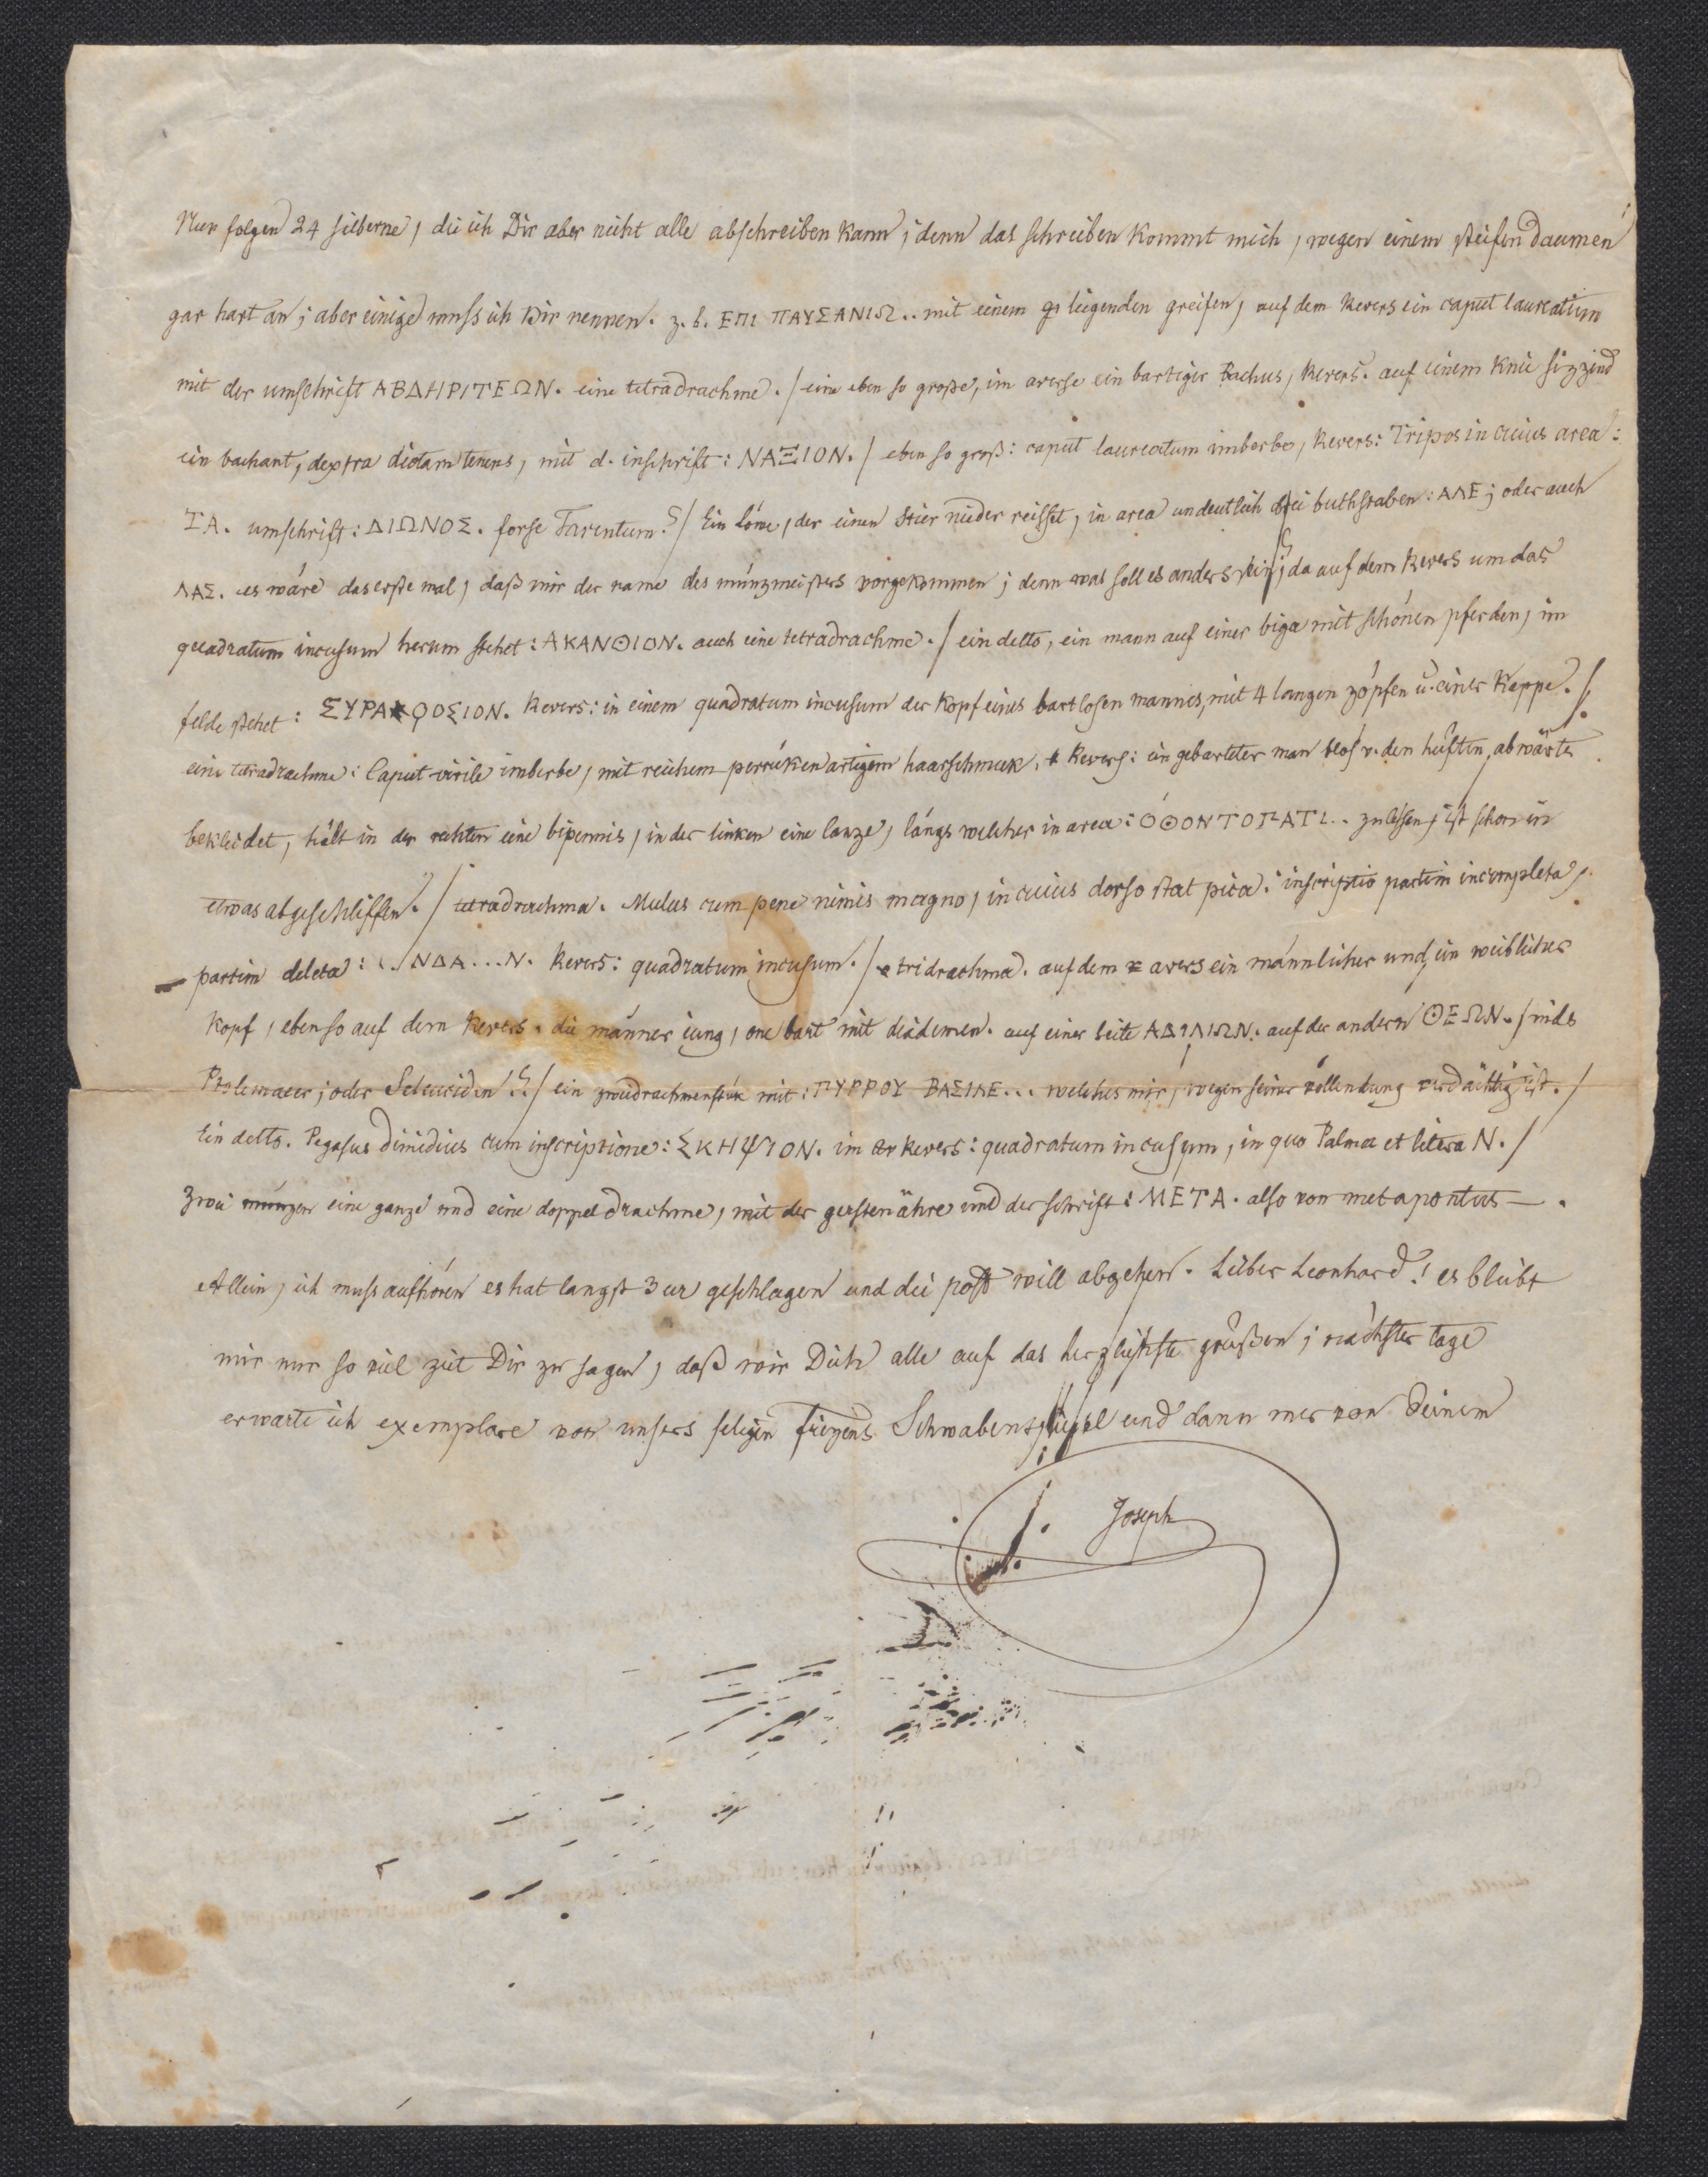 Nun folgen 24 silberne, die ich Dir aber nicht alle abschreiben kann; denn das schreiben kommt mich, wegen einem steifen daumen
gar hart an; aber einige muss ich Dir nennen. z. b. ΕΠΙ ΠΑΥΣΑΝΙΩ.. mit einem liegenden greifen, auf dem Revers ein caput laureatum
mit der umschrift ΑΒΔΗΡΙΤΕΩΝ. eine tetradrachme. / eine eben so große, im averse ein bartiger Bachus, Revers. auf einem knie sizzend
ein bachant, dextra diotam tenens, mit d. inschrift: ΝΑΞΙΟΝ. / eben so groß: caput laureatum imberbe, Revers: Tripos in cuius area:
ΤΑ. umschrift: ΔΙΩΝΟΣ. forse Tarentum? / Ein löwe, der einen Stier nieder reisset, in area undeutlich drei buchstaben: ΑΛΕ; oder auch
ΛΑΣ. es wäre das erste mal, daß mir der name des münzmeisters vorgekommen; denn was soll es anders sein? da auf dem Revers um das
quadratum incusum herum stehet: ΑΚΑΝΘΙΟΝ. auch eine tetradrachme. / ein detto, ein mann auf einer biga mit schönen pferden, im
felde stehet: ΣΥΡΑϘΟΣΙΟΝ. Revers: in einem quadratum incusum der kopf eines bartlosen mannes, mit 4 langen zöpfen u. einer Kappe. /.
eine tetradrachme: Caput virile imberbe, mit reichem perrükenartigem haarschmuk. Revers: ein gebarteter man blos v. den hüften, abwärts
bekleidet, hält in der rechten eine bipennis, in der linken eine lanze, längs welcher in area: ΟΘΟΝΤΟΠΑΤΙ.. zu lesen, ist schon in
etwas abgeschliffen. / tetradrachma. Mulus cum pene nimis magno, in cuius dorso stat pica. inscriptio partim incompleta,
partim deleta: ...ΝΔΑ...Ν. Revers: quadratum incusum. / tridrachma. auf dem avers ein männlicher und ein weiblicher
kopf, eben so auf dem Revers. die männer iung, one bart mit diademen. auf einer seite ΑΔΕΛΙΩΝ. auf der andern ΘΕΩΝ. / inds
Ptolemaeer; oder Seleuciden? / ein zweidrachmenstük mit: ΠΥΡΡΟΥ ΒΑΣΙΛΕ... welches mir, wegen seiner vollendung verdächtig ist. /
Ein detto. Pegasus dimidius cum inscriptione: ΣΚΗΨΙΟΝ. im Revers: quadratum incusum, in quo Palma et litera N. /
Zwei münzen eine ganze und eine doppel drachme, mit der gerstenähre und der schrift: ΜΕΤΑ. also von metapontus —.
Allein, ich muss aufhören es hat langst 3 ur geschlagen und die post will abgehen. Lieber Leonhard! es bleibt
mir nur so viel zeit Dir zu sagen, daß wir Dich alle auf das herzlichste grüßen; nächster tage
erwarte ich exemplare von unsers seligen Schwabenspiegel und dann mer von Deinem
Joseph